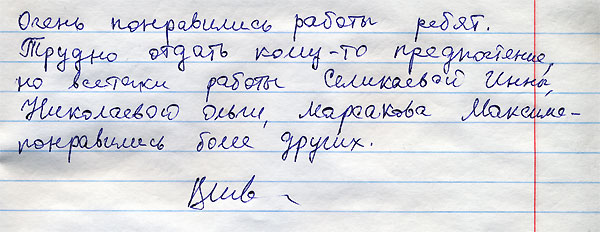 Очень понравились работы ребят.
Трудно отдать кому-то предпочтение,
но всетаки работы Селикаевой Инны,
Николаевой Ольги, Марсакова Максима-
понравились более других.